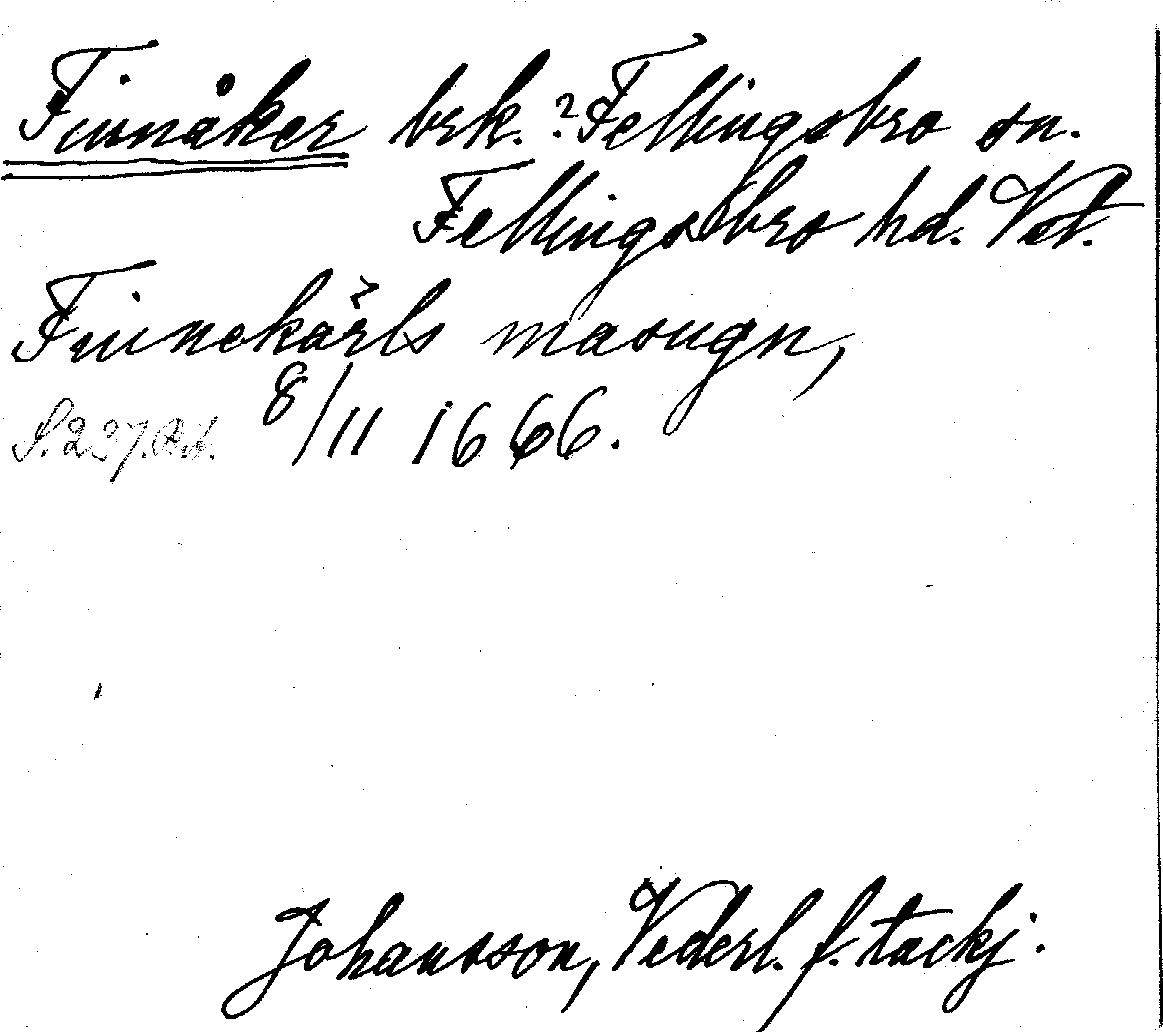 Finnåker brk. ? Fellingsbro sn.
Fellingsbro hd. Vstm.
Finnekärls masugn,
S. 237. 8/11 1666.
Johansson, Vederl. f. tackj.